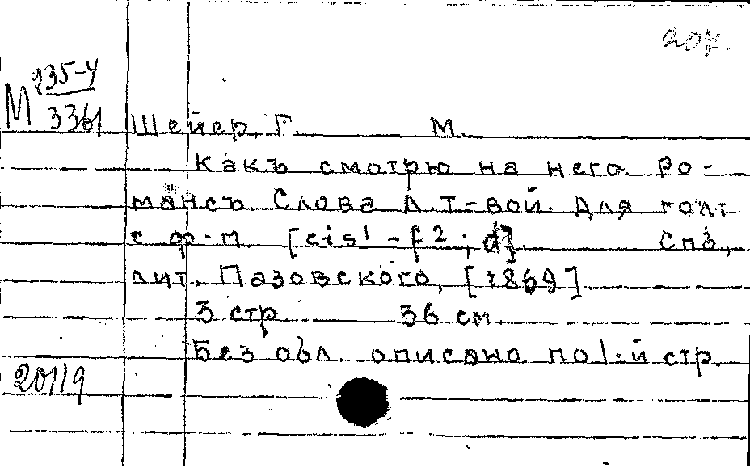 207.
М 235-4
3361
Шейер, Г. М.
Какъ смотрю на него. Ро-
мансъ. Слова А. Т-вой. Для гол.
с ф-п [cis1-f2; d] Спб,
лит. Пазовского, [1869]
3 стр. 36 см.
Без обл. описано по 1-й стр.
20119